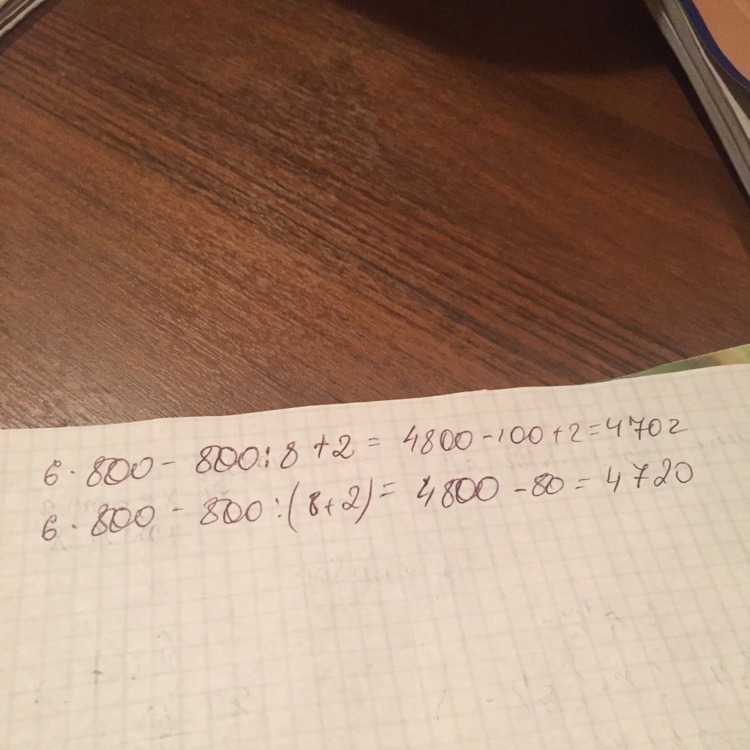 6 · 800 - 800 : 8 + 2 = 4800 - 100 + 2 = 4702
6 · 800 - 800 : (8 + 2) = 4800 - 80 = 4720